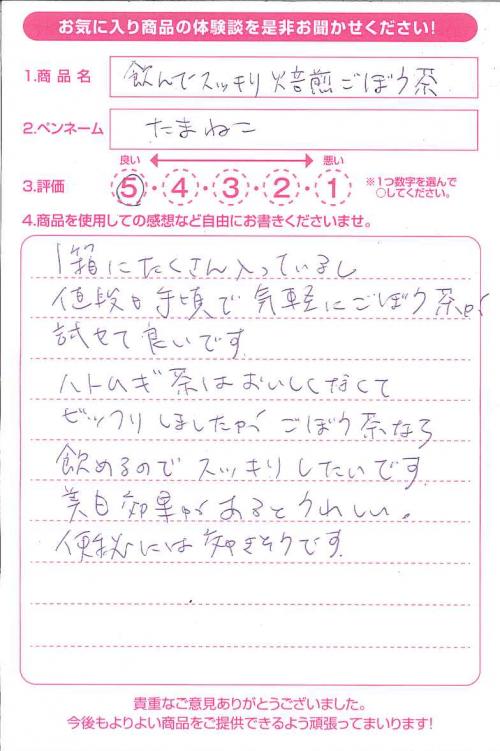 お気に入り商品の体験談を是非お聞かせください!
1.商品名 飲んでスッキリ焙煎ごぼう茶
2.ペンネーム たまねこ
良い 悪い
3.評価 5・4・3・2・1 ※1つ数字を選んで
○してください。
4.商品を使用しての感想など自由にお書きくださいませ。
1箱にたくさん入っているし
値段も手頃で気軽にごぼう茶が
試せて良いです
ハトムギ茶はおいしくなくて
ビックリしましたが ごぼう茶なら
飲めるのでスッキリしたいです
美白効果があるとうれしい。
便秘には効きそうです
貴重なご意見ありがとうございました。
今後もよりよい商品をご提供できるよう頑張ってまいります!